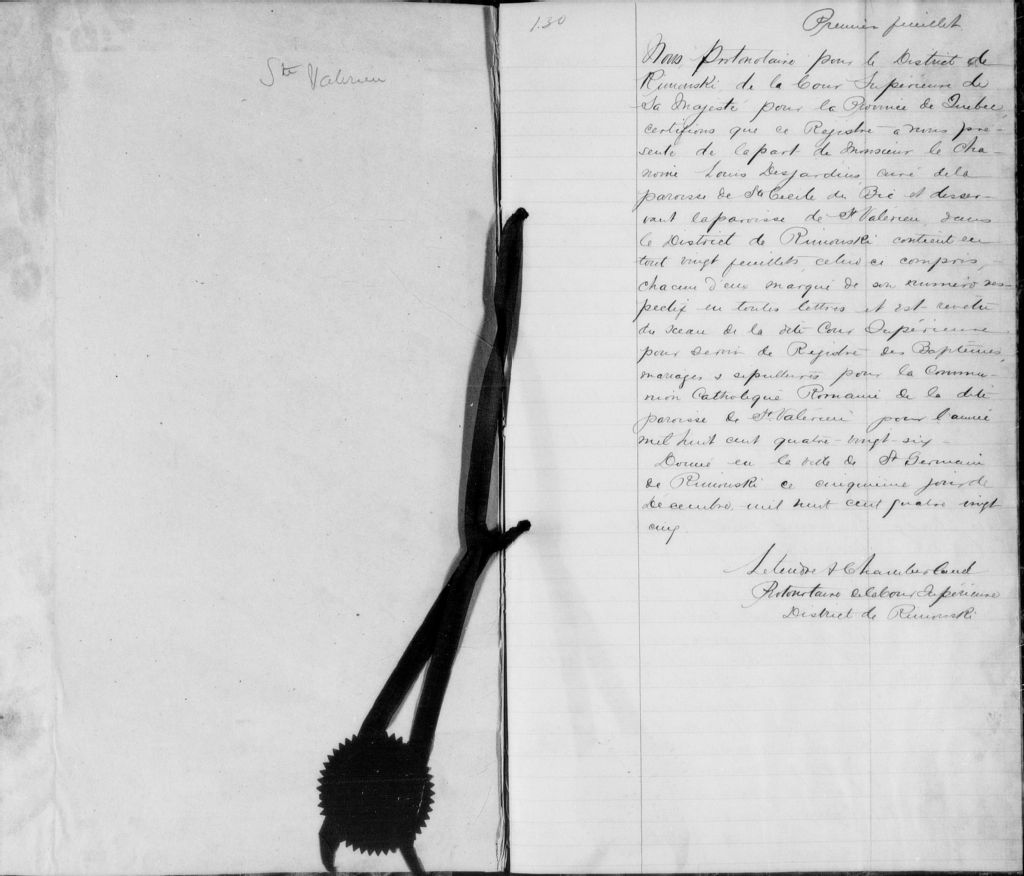 Ste Valerien
130
Premier feuillet
Nous Protonotaire pour le District de
Rimouski, de la Cour Supérieure de
Sa Majesté pour la Province de Quebec,
certifions que ce Registre a nous pré-
senté de la part de Monsieur le Cha-
noine Louis Desjardins curé de la
paroisse de Ste Cecile du Bic et desser-
vant la paroisse de St Valérien, dans
le District de Rimouski contient en
tout vingt feuillets, celui ci compris,
chacun d'eux marqué de son numéro res-
pectif en toutes lettres et est revêtu
du sceau de la dite Cour Supérieure
pour servir de Registre des Baptêmes,
mariages & sepultures pour la Commu-
nion Catholique Romaine de la dite
paroisse de St Valérien pour l'année
mil huit cent quatre-vingt-six -
Donné en la ville de St Germain
de Rimouski ce cinquième jour de
Décembre, mil huit cent quatre vingt
cinq
Letendre & Chamberland
Protonotaire de la Cour Supérieure
District de Rimouski